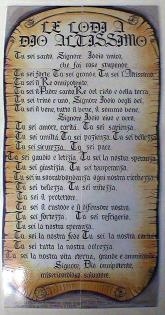 LE LODI A
DIO ALTISSIMO
Tu sei santo, Signore Iddio unico,
che fai cose stupende.
Tu sei forte. Tu sei grande. Tu sei l'Altissimo.
Tu sei il Re onnipotente.
Tu sei il Padre santo Re del cielo e della terra.
Tu sei trino e uno, Signore Iddio degli dei,
Tu sei il bene, tutto il bene, il sommo bene,
Signore Iddio vivo e vero.
Tu sei amore, carità. Tu sei sapienza.
Tu sei umiltà. Tu sei pazienza. Tu sei bellezza.
Tu sei sicurezza. Tu sei pace.
Tu sei gaudio e letizia. Tu sei la nostra speranza.
Tu sei giustizia. Tu sei temperanza.
Tu sei in sovrabbondanza ogni nostra ricchezza.
Tu sei bellezza. Tu sei mitezza.
Tu sei il protettore.
Tu sei il custode e il difensore nostro.
Tu sei fortezza. Tu sei refrigerio.
Tu sei la nostra speranza.
Tu sei la nostra fede. Tu sei la nostra
Tu sei tutta la nostra dolcezza.
Tu sei la nostra vita eterna, grande e ammirabile
Signore, Dio onnipotente,
misericordioso salvatore.